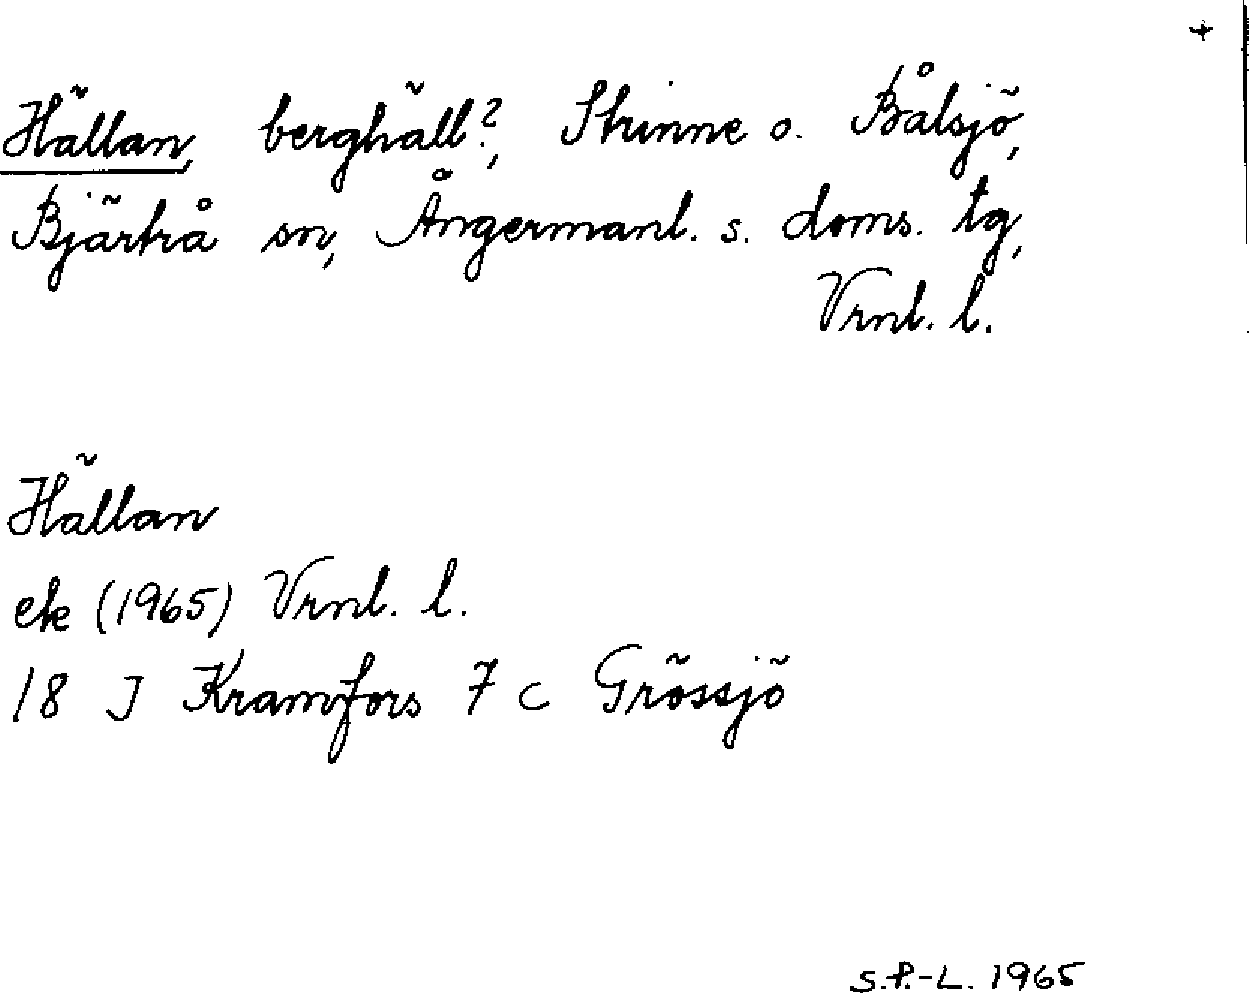 +
Hällan, berghäll?, Skinne o. Bålsjö,
Bjärtrå sn, Ångermanl. s. doms. tg,
Vrnl. l.
Hällan
ek (1965) Vrnl. l.
18 J Kramfors 7 c Grössjö
S.P.-L. 1965